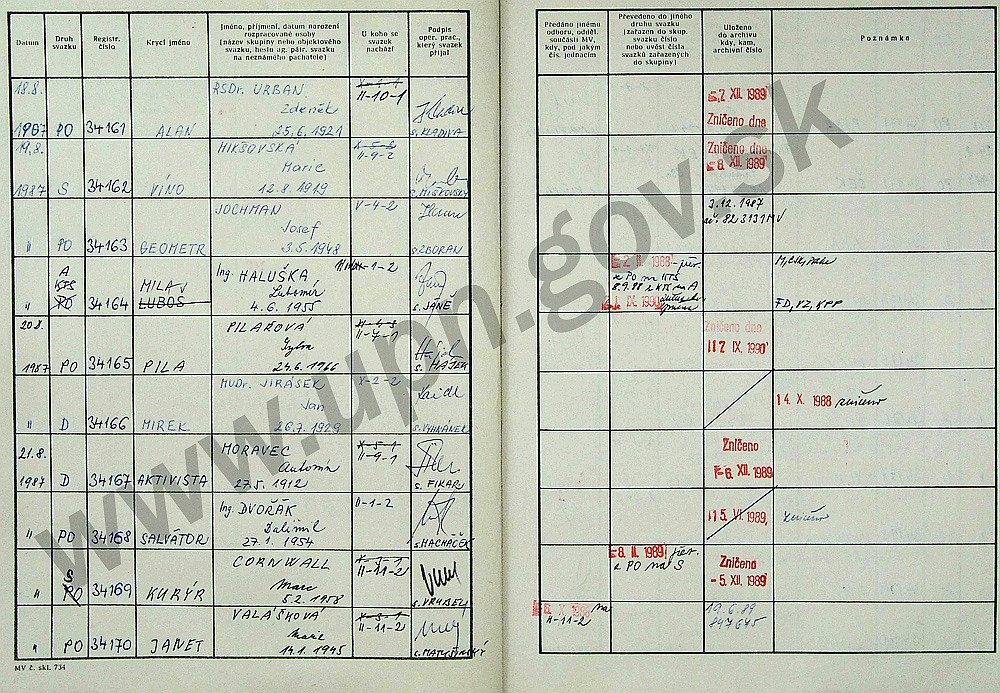 Datum
Druh svazku
Registr. číslo
Krycí jméno
Jméno, příjmení, datum narození
rozpracované osoby
(název skupiny nebo objektového
svazku, heslo ag. pátr. svazku
na neznámého pachatele)
U koho se
svazek
nachází
Podpis
oper. prac.,
který svazek
přijal
Předáno jinému
odboru, odděl.
součásti MV,
kdy, pod jakým
čís. jednacím
Převedeno do jiného
druhu svazku
(zařazen do skup.
svazku číslo
nebo uvést čísla
svazků zařazených
do skupiny)
Uloženo
do archivu
kdy, kam,
archivní číslo
Poznámka
18.8.
1987 PO 34161 ALAN
RSDr. URBAN
Zdeněk
25.6.1921
II-10-1
s. KLADIVA
XII. 1989
Zničeno dne
19.8.
1987 S 34162 VÍNO
MIKŠOVSKÁ
Marie
12.8.1919
X-5-3
II-9-2
s. MIŠKOVSKÝ
Zničeno dne
8. XII. 1989
" PO 34163 GEOMETR
JOCHMAN
Josef
3.5.1948
V-4-2
s. ZBORAN
3.12.1987
A
KTS
PO
" 34164 MILAN
LUBOŠ
Ing. HALUŠKA
Lubomír
4.6.1955
1-2
s. JANĚ
2. II. 1988 - přev.
z PO na KTS
8.9.88 z KTS na A
IX. 1990
FD, VZ, KPP
20.8.
1987 PO 34165 PILA
PILAŘOVÁ
24.6.1966
II-7-1
s. HÁJEK
Zničeno dne
12 IX. 1990
" D 34166 MIREK
MUDr. JIRÁSEK
Jan
26.7.1929
X-2-2
s. VYHNÁNEK
14. X. 1988 zničeno
21.8.
1987 D 34167 AKTIVISTA
MORAVEC
Antonín
27.5.1912
X-5-1
II-9-1
s. FIKAR
Zničeno
6. XII. 1989
" PO 34168 SALVÁTOR
Ing. DVOŘÁK
Dalimil
27.1.1954
II-1-2
s. HACHAČEK
15. VI. 1989
zničeno
S
" PO 34169 KURÝR
CORNWALL
Marc
5.2.1958
II-11-2
s. VRUBEL
8. II. 1989 přev.
z PO na S
Zničeno
-5. XII. 1989
" PO 34170 JANET
VALÁŠKOVÁ
Marie
14.1.1945
X-3-1
II-11-2
6. X. 1988 na
II-11-2
19.6.89
847645
MV č. skl. 734
www.upn.gov.sk